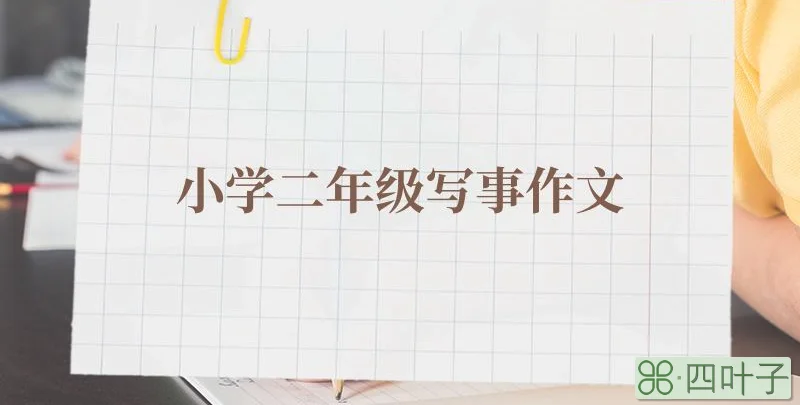 小学二年级写事作文
四叶子